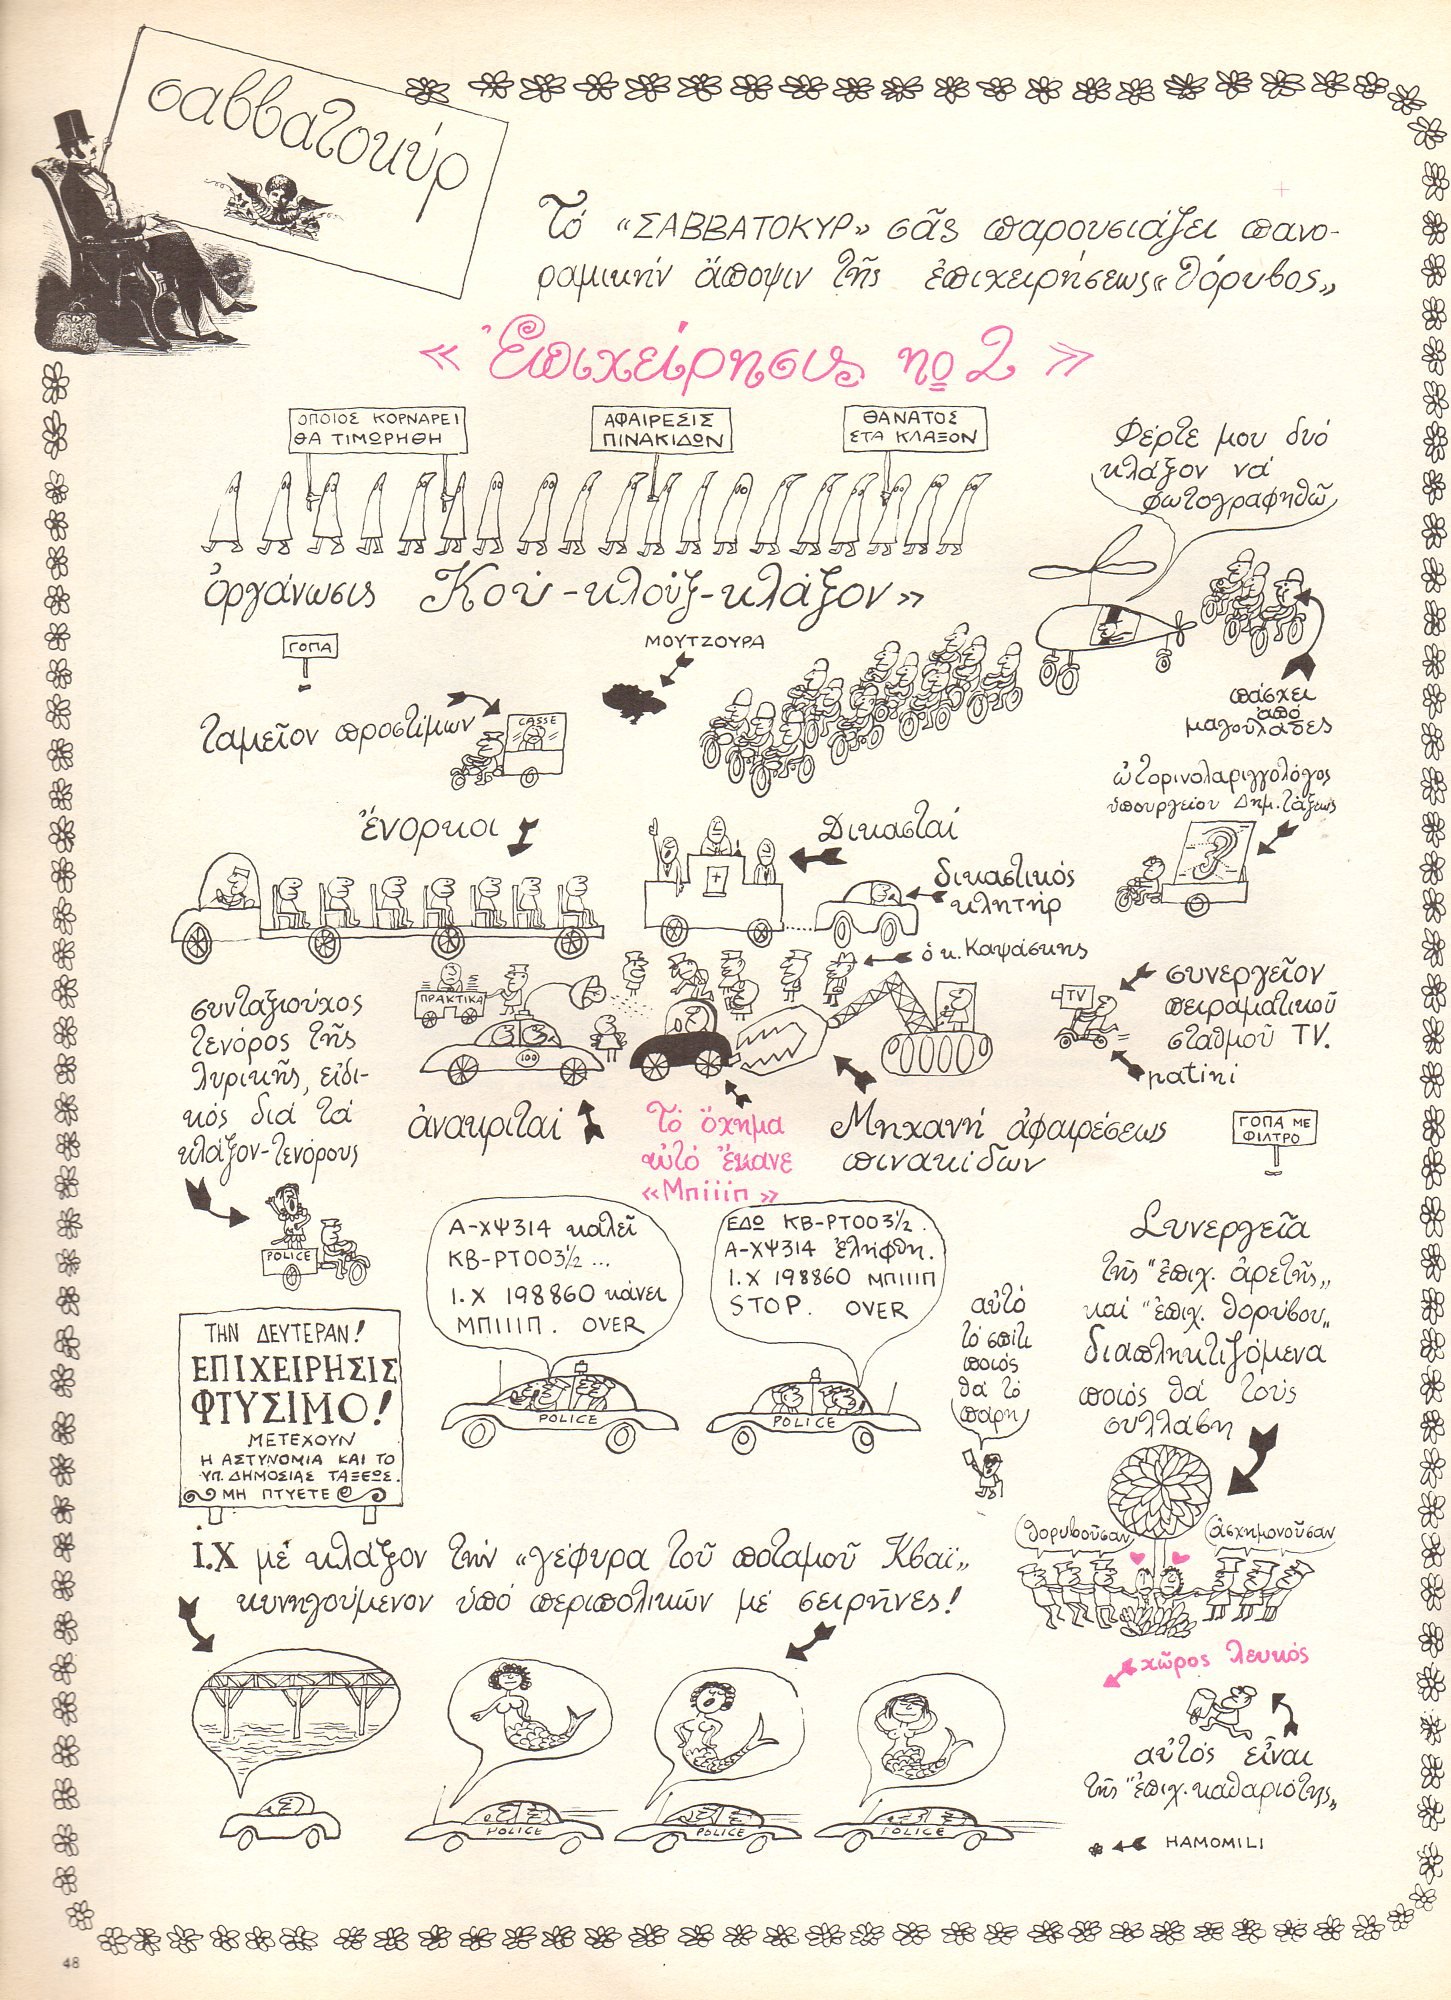 σαββατοκύρ
Τό «ΣΑΒΒΑΤΟΚΥΡ» σᾶς παρουσιάζει πανο-
ραμικήν ἄποψιν τῆς ἐπιχειρήσεως «θόρυβος»
«Ἐπιχείρησις no 2»
ΟΠΟΙΟΣ ΚΟΡΝΑΡΕΙ
ΘΑ ΤΙΜΩΡΗΘΗ
ΑΦΑΙΡΕΣΙΣ
ΠΙΝΑΚΙΔΩΝ
ΘΑΝΑΤΟΣ
ΣΤΑ ΚΛΑΞΟΝ
Φέρτε μου δυό
κλάξον νά
φωτογραφηθῶ
ὀργάνωσις Κού-κλούξ-κλάξον»
ΓΟΠΑ
ΜΟΥΤΖΟΥΡΑ
πάσχει
ἀπό
μαγουλάδες
ταμεῖον προστίμων
CASSE
ὠτορινολαριγγολόγος
ὑπουργείου Δημ. τάξεως
ἔνορκοι
Δικασταί
δικαστικός
κλητήρ
ὁ κ. Καψάσκης
ΠΡΑΚΤΙΚΑ
100
TV
συνεργεῖον
πειραματικοῦ
σταθμοῦ TV.
patini
συνταξιούχος
τενόρος τῆς
λυρικῆς, εἰδι-
κός διά τά
κλάξον-τενόρους
ἀνακριταί
τό ὄχημα
αὐτό ἔκανε
«Μπιιίπ»
Μηχανή ἀφαιρέσεως
πινακίδων
ΓΟΠΑ ΜΕ
ΦΙΛΤΡΟ
POLICE
Α-ΧΨ314 καλεῖ
ΚΒ-ΡΤΟΟ3½...
Ι.Χ 198860 κάνει
ΜΠΙΙΙΠ. OVER
ΕΔΩ ΚΒ-ΡΤΟΟ3½.
Α-ΧΨ314 ἐλήφθη.
Ι.Χ 198860 ΜΠΙΙΙΠ
STOP. OVER
POLICE
POLICE
αὐτό
τό σπίτι
ποιός
θά τό
πάρη
Συνεργεῖα
τῆς "ἐπιχ. ἀρετῆς„
καί "ἐπιχ. θορύβου„
διαπληκτιζόμενα
ποιός θά τούς
συλλάβη
ΤΗΝ ΔΕΥΤΕΡΑΝ!
ΕΠΙΧΕΙΡΗΣΙΣ
ΦΤΥΣΙΜΟ!
ΜΕΤΕΧΟΥΝ
Η ΑΣΤΥΝΟΜΙΑ ΚΑΙ ΤΟ
ΥΠ. ΔΗΜΟΣΙΑΣ ΤΑΞΕΩΣ.
ΜΗ ΠΤΥΕΤΕ
θορυβοῦσαν
ἀσχημονοῦσαν
Ι.Χ μέ κλάξον τήν «γέφυρα τοῦ ποταμοῦ Κβαϊ»
κυνηγούμενον ὑπό περιπολικῶν μέ σειρῆνες!
χῶρος λευκός
αὐτός εἶναι
τῆς "ἐπιχ. καθαριότης„
POLICE
POLICE
POLICE
HAMOMILI
48